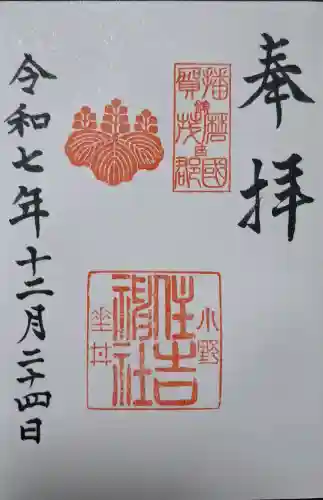 奉拝
播磨國
賀茂郡
住吉
神社
小野
垂井
令和七年十二月二十四日